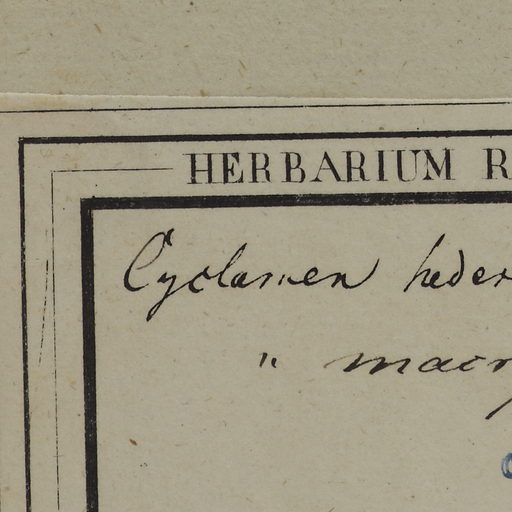 HERBARIUM R
Cyclamen heder
" macr